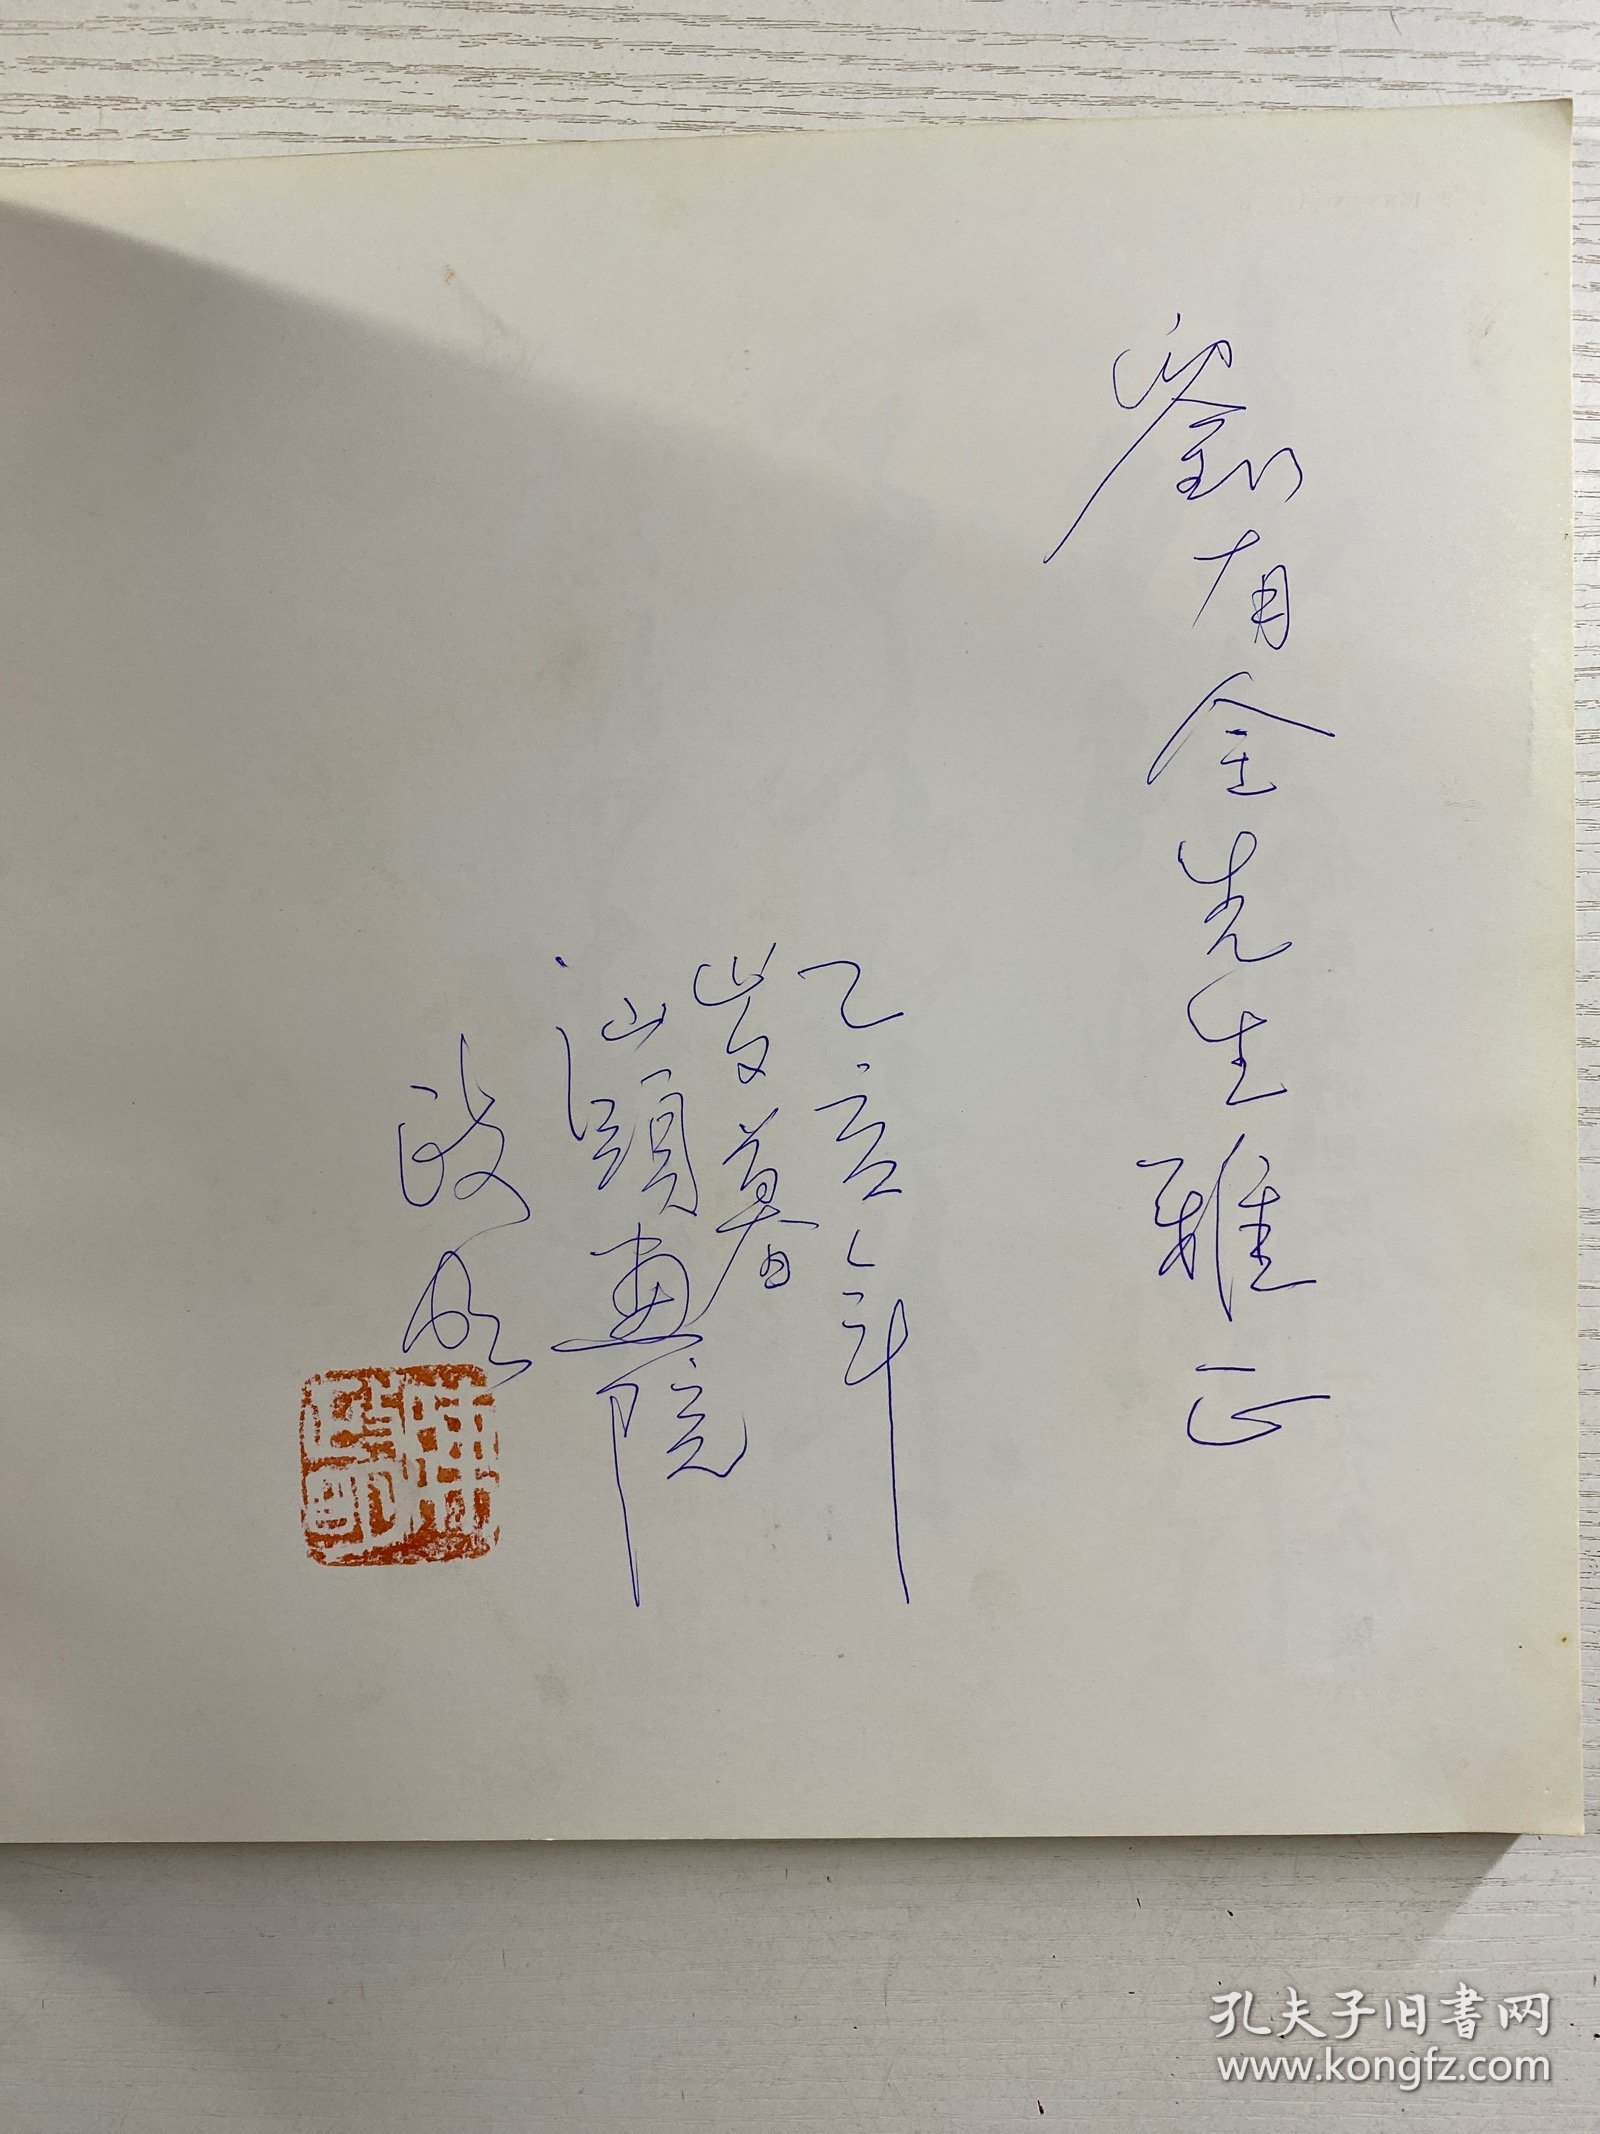 劉有金先生雅正
乙亥年
歲暮春
汕頭畫院
政明
孔夫子旧书网
www.kongfz.com